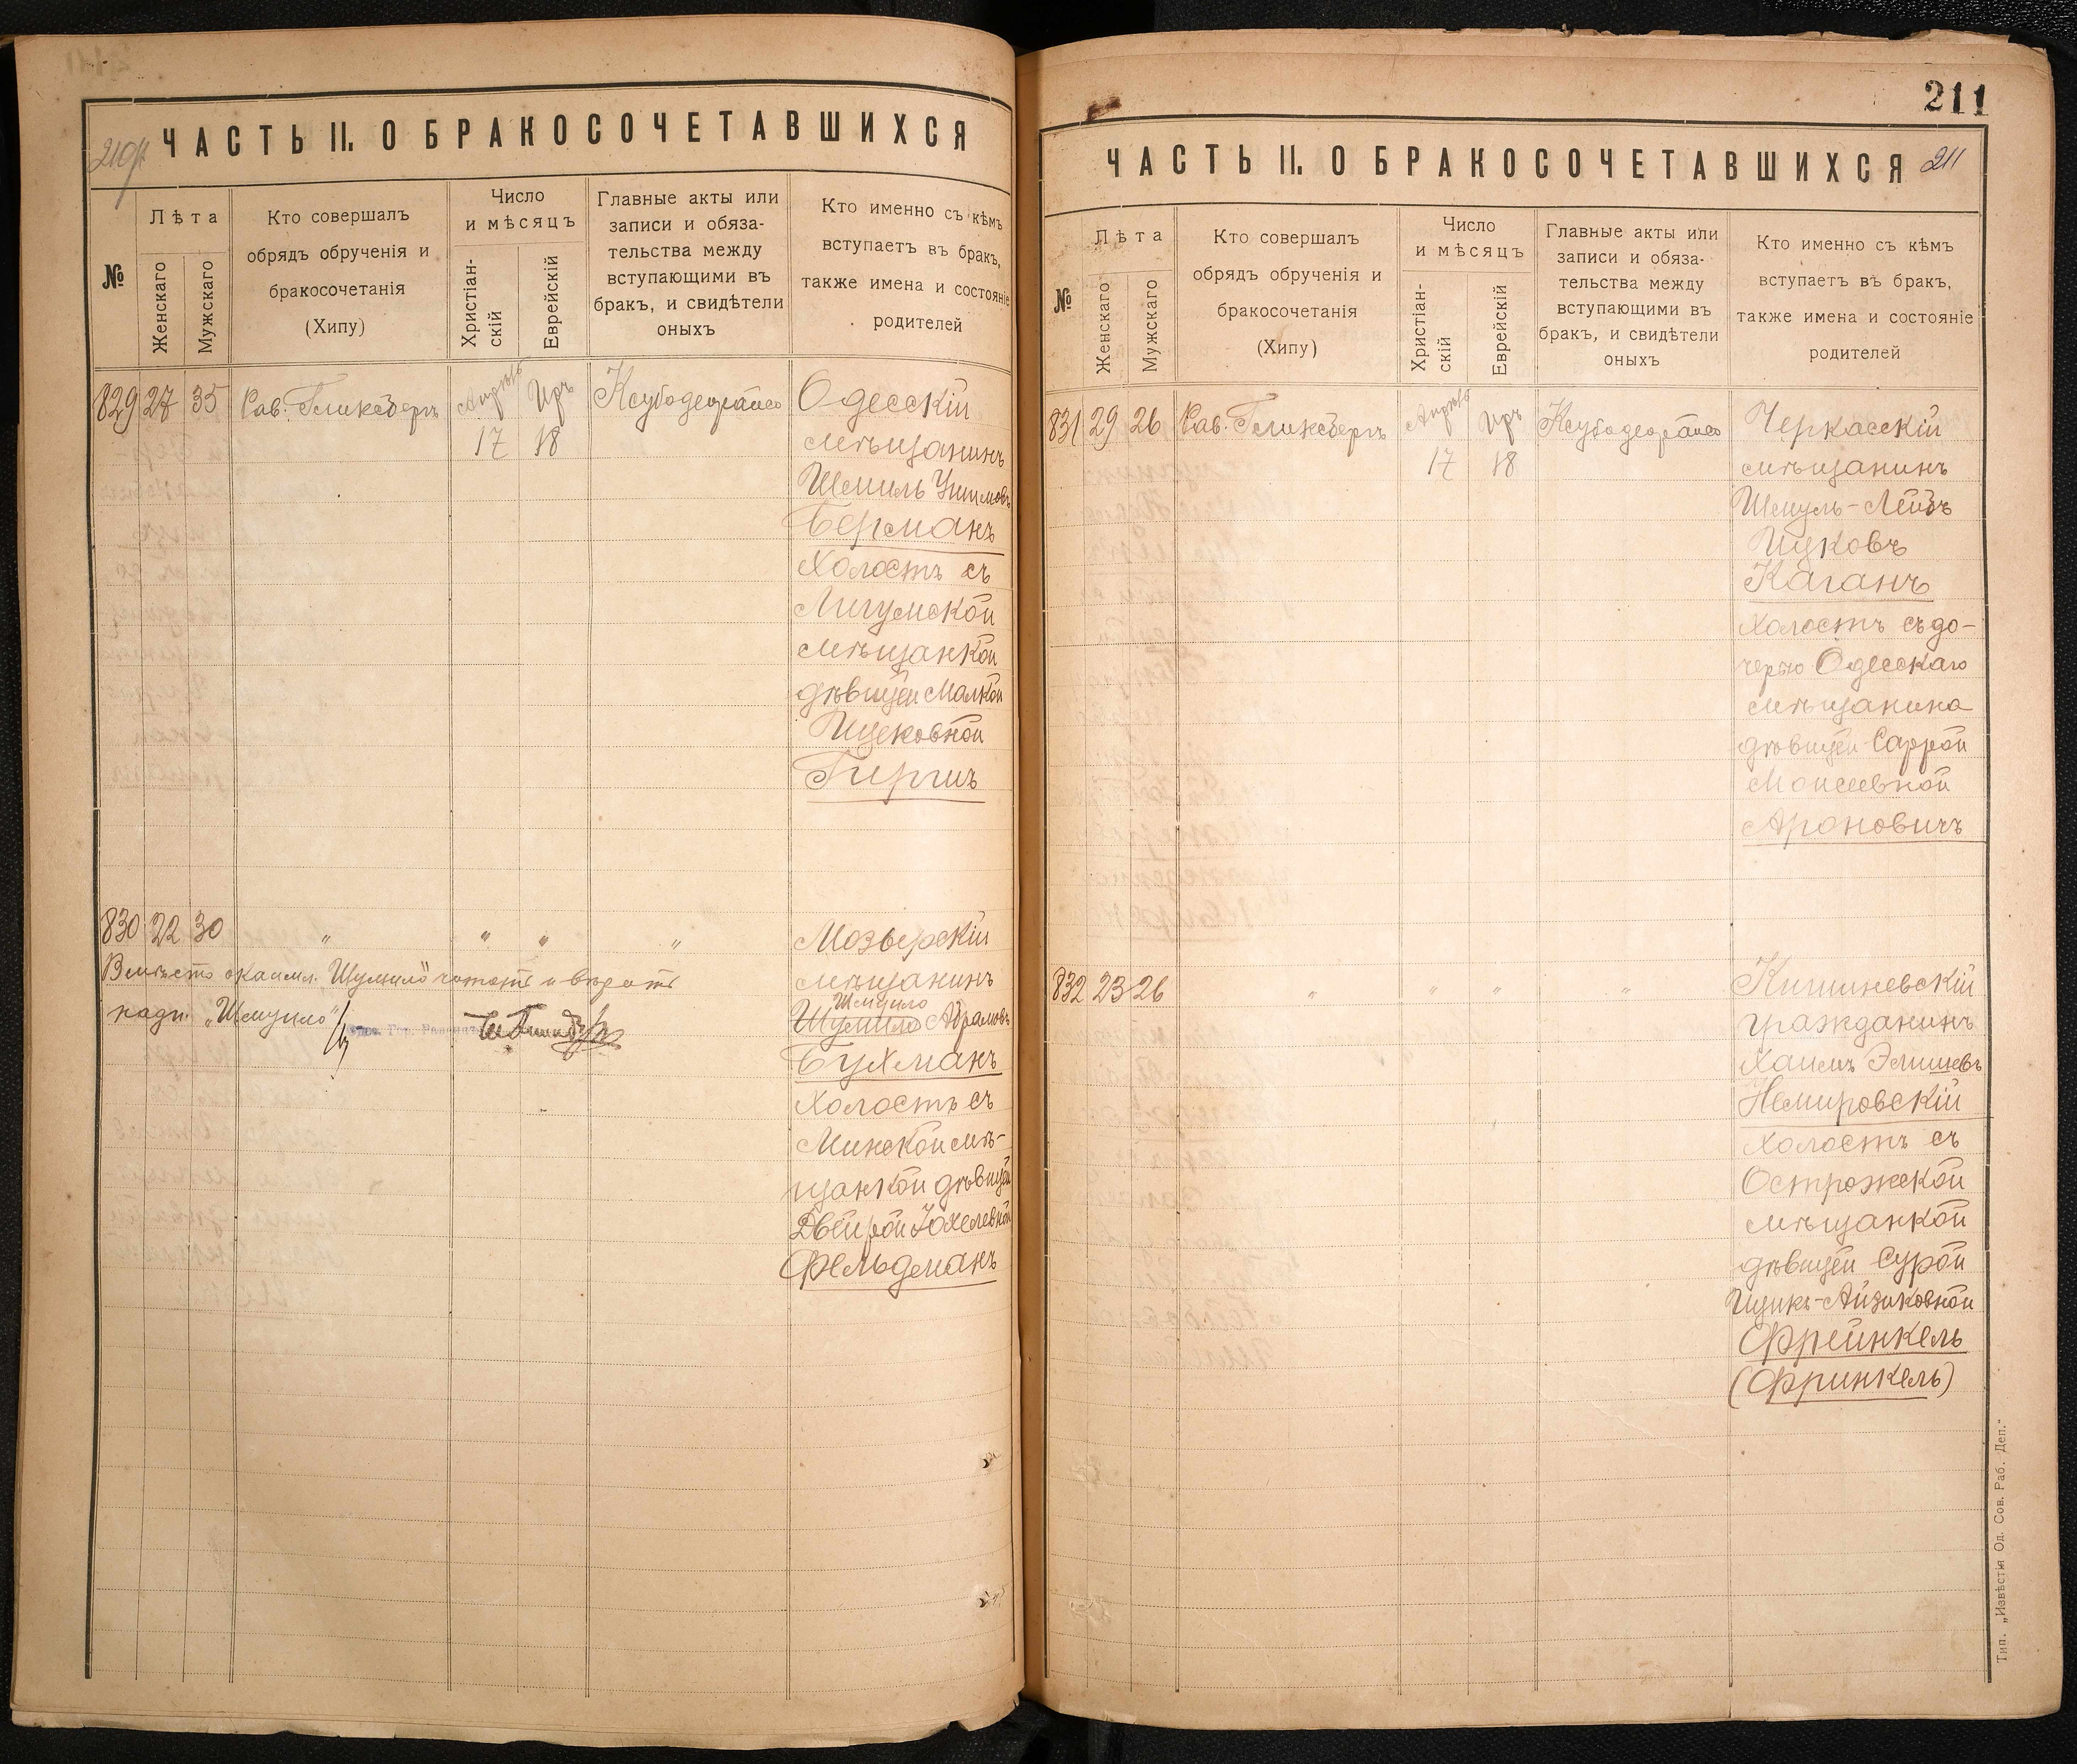 ЧАСТЬ II. О БРАКОСОЧЕТАВШИХСЯ
№
Лѣта
Женскаго
Мужскаго
Кто совершалъ
обрядъ обрученія и
бракосочетанія
(Хипу)
Число
и мѣсяцъ
Христіан-
скій
Еврейскій
Главные акты или
записи и обяза-
тельства между
вступающими въ
бракъ, и свидѣтели
оныхъ
Кто именно съ кѣмъ
вступаетъ въ бракъ,
также имена и состояніе
родителей
829 27 35 Рав. Гликсбергъ Апрѣль Иръ Ксубо деорайсо Одесскій
17 18 мѣщанинъ
Шмиль
Берманъ
холостъ съ
Лигумской
мѣщанкой
дѣвицей Малкой
Ицковной
Гиршъ
830 22 30 " " " " Мозырскій
Вмѣсто Шумило читать и вѣрить мѣщанинъ
надп. „Шмуило" Шмуило
Шумило Абрамовъ
Бухманъ
холостъ съ
Минской мѣ-
щанкой дѣвицей
Двейрой Іохелевной
Фельдманъ
211
ЧАСТЬ II. О БРАКОСОЧЕТАВШИХСЯ 211
№
Лѣта
Женскаго
Мужскаго
Кто совершалъ
обрядъ обрученія и
бракосочетанія
(Хипу)
Число
и мѣсяцъ
Христіан-
скій
Еврейскій
Главные акты или
записи и обяза-
тельства между
вступающими въ
бракъ, и свидѣтели
оныхъ
Кто именно съ кѣмъ
вступаетъ въ бракъ,
также имена и состояніе
родителей
831 29 26 Рав. Гликсбергъ Апрѣль Иръ Ксубо деорайсо Черкасскій
17 18 мѣщанинъ
Шмуль-Лейбъ
Ицковъ
Каганъ
холостъ съ до-
черью Одесскаго
мѣщанина
дѣвицей Саррой
Моисеевной
Ароновичъ
832 23 26 " " " " Кишиневскій
гражданинъ
Хаимъ Элишевъ
Немировскій
холостъ съ
Острожской
мѣщанкой
дѣвицей Сурой
Ицикъ-Айзиковной
Фрейнкель
(Фринкель)
Тип. „Извѣстія Од. Сов. Раб. Деп."